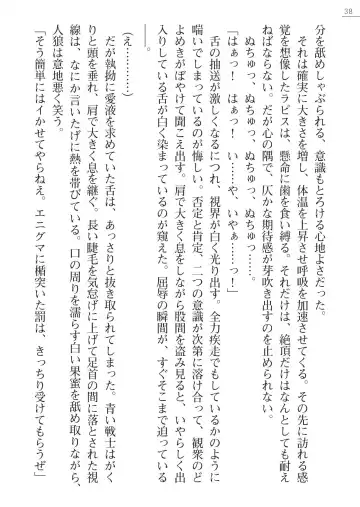 38
分を舐めしゃぶられる、意識もとろける心地よさだった。
それは確実に大きさを増し、体温を上昇させて呼吸を加速させてくる。その先に訪れる感
覚を想像したラピスは、懸命に歯を食い縛る。それだけは、絶頂だけはなんとしても耐え
ねばならない。だが心の隅で、仄かな期待感が芽吹き出すのを止められない。
ぬちゅっ、ぬちゅっ、ぬちゅっ……。
「はぁっ！　はぁっ！　い……や、いやぁ……っ！」
舌の抽送が激しくなるにつれ、視界が白く光り出す。全力疾走でもしているかのように
喘いでしまっているのが悔しい。否定と肯定、二つの意識が次第に溶け合って、観衆のど
よめきがぼやけて聞こえ出す。肩で大きく息をしながら股間を盗み見ると、いやらしく出
入りしている舌が白く染まっているのが窺えた。屈辱の瞬間が、すぐそこまで迫っている。
（え…………）
だが執拗に愛液を求めていた舌は、あっさりと抜き取られてしまった。青い戦士はがく
りと頭を垂れ、肩で大きく息を継ぐ。長い睫毛を気怠げに上げて足首の間に落とされた視
線は、なにか言いたげに熱を帯びている。口の周りを濡らす白い果蜜を舐め取りながら、
人狼は意地悪く笑う。
「そう簡単にはイかせてやらねえ。エニグマに楯突いた罰は、きっちり受けてもらうぜ」